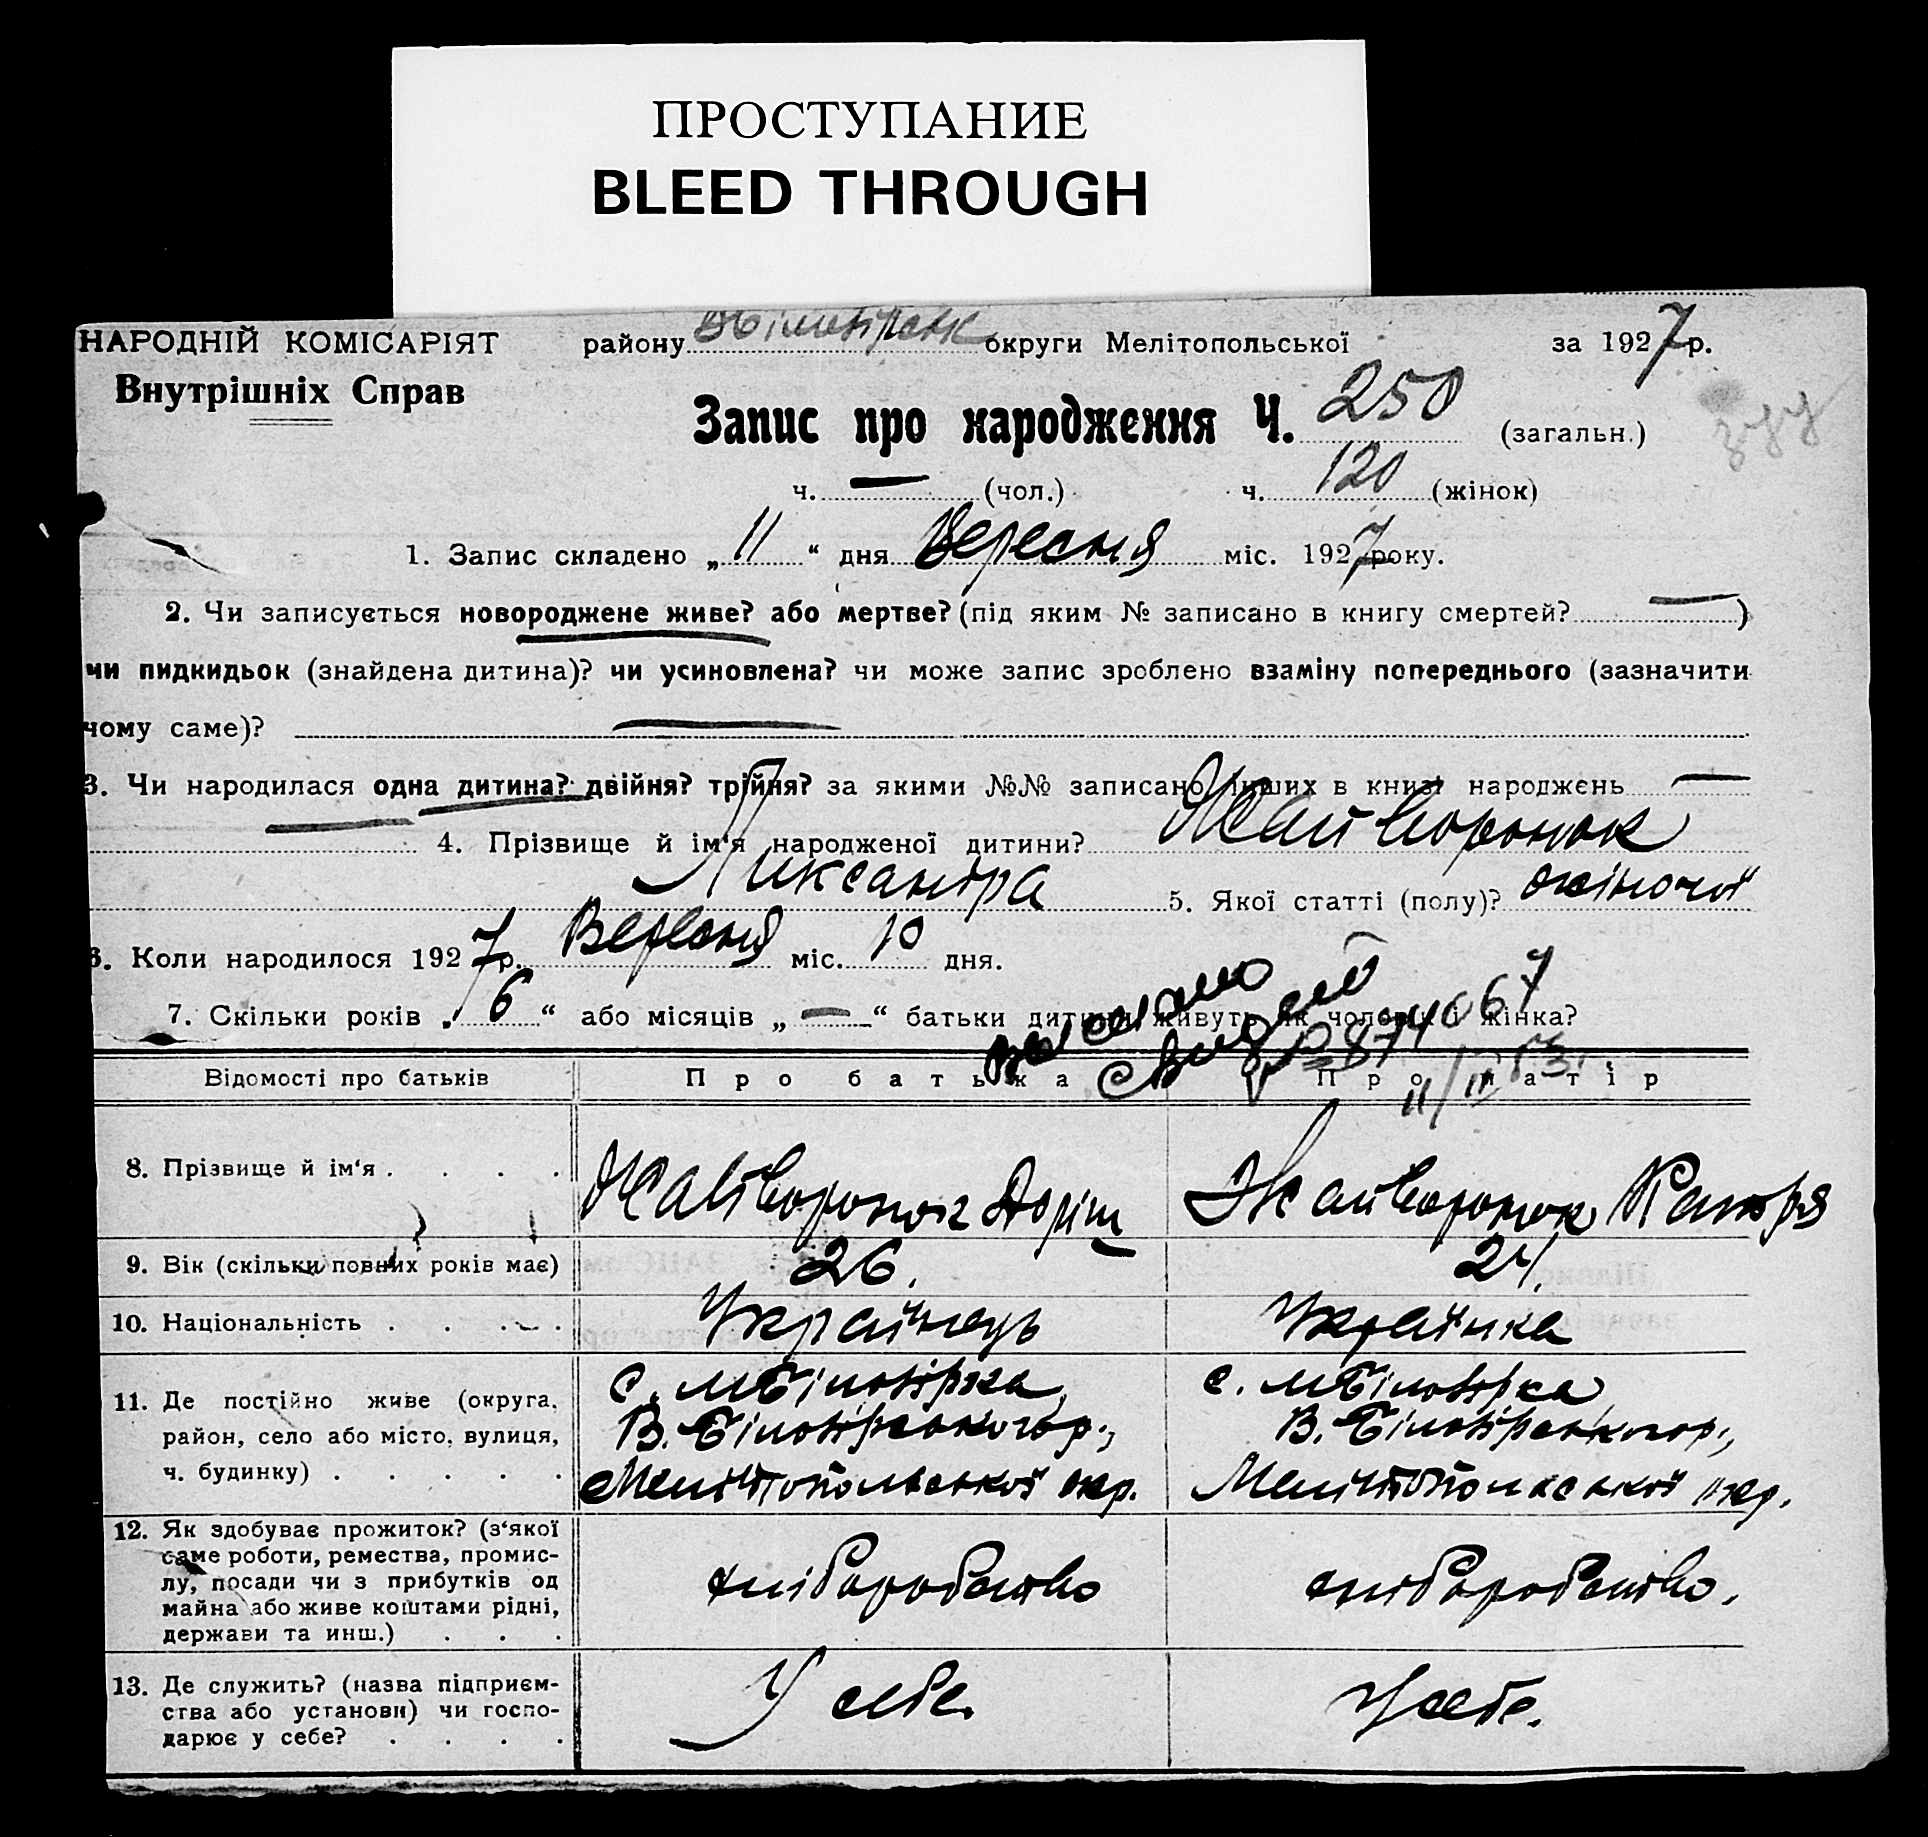 ПРОСТУПАНИЕ
BLEED THROUGH
НАРОДНІЙ КОМІСАРІЯТ району округи Мелітопольської за 1927 р.
Внутрішніх Справ
Запис про народження Ч. 250 (загальн.)
ч. — (чол.) ч. 120 (жінок)
1. Запис складено „ 11 “ дня Вересня міс. 1927 року.
2. Чи записується новороджене живе? або мертве? (під яким № записано в книгу смертей? — )
чи пидкидьок (знайдена дитина)? чи усиновлена? чи може запис зроблено взаміну попереднього (зазначити
чому саме)? —
3. Чи народилася одна дитина? двійня? трійня? за якими №№ записано інших в книзі народжень —
— 4. Прізвище й ім‘я народженої дитини? Жайворонок
Ликсандра 5. Якої статті (полу)? жіночої
6. Коли народилося 1927 р. Вересня міс. 10 дня.
7. Скільки років „ 6 “ або місяців „ — “ батьки дитини живуть як чоловік і жінка?
Відомості про батьків Про батька Про матір
8. Прізвище й ім‘я . . . . Жайворонок Жайворонок
9. Вік (скільки повних років має) 26. 24.
10. Національність . . . . Українець Українка
11. Де постійно живе (округа, с. М Білозірка, с. М Білозірка
район, село або місто, вулиця, В. Білозірського р., В. Білозірського р.,
ч. будинку) . . . . . Мелітопольської окр. Мелітопольської окр.
12. Як здобуває прожиток? (з‘якої
саме роботи, ремества, промис-
лу, посади чи з прибутків од хліборобство хліборобство.
майна або живе коштами рідні,
держави та инш.) . . .
13. Де служить? (назва підприєм-
ства або установи) чи госпо- У себе. У себе.
дарює у себе? . . . .